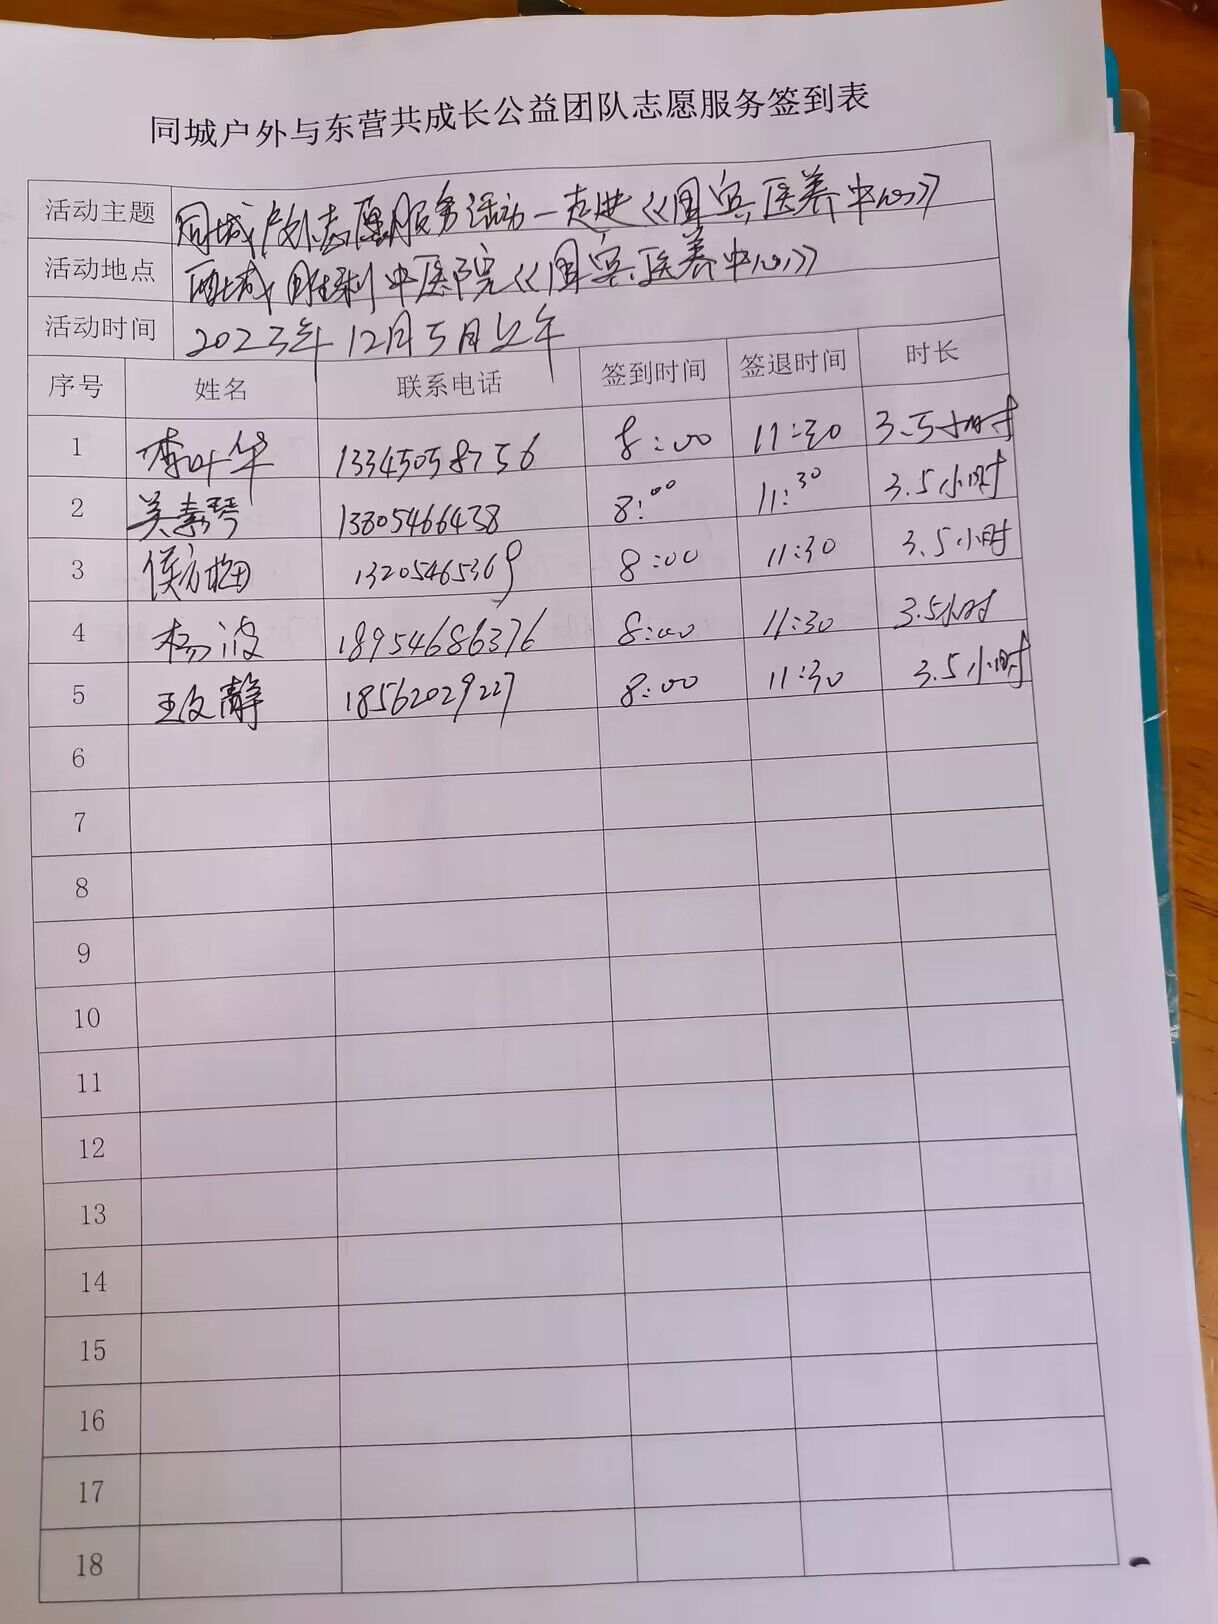 同城户外与东营共成长公益团队志愿服务签到表
活动主题 同城户外志愿服务活动—走进《国宾医养中心》
活动地点 西城胜利中医院《国宾医养中心》
活动时间 2023年12月5日上午
序号 姓名 联系电话 签到时间 签退时间 时长
1 李叶华 13345058756 8:00 11:30 3.5小时
2 吴素琴 13305466438 8:00 11:30 3.5小时
3 侯方梅 13205465369 8:00 11:30 3.5小时
4 杨波 18954686376 8:00 11:30 3.5小时
5 王文静 18562029227 8:00 11:30 3.5小时
6
7
8
9
10
11
12
13
14
15
16
17
18